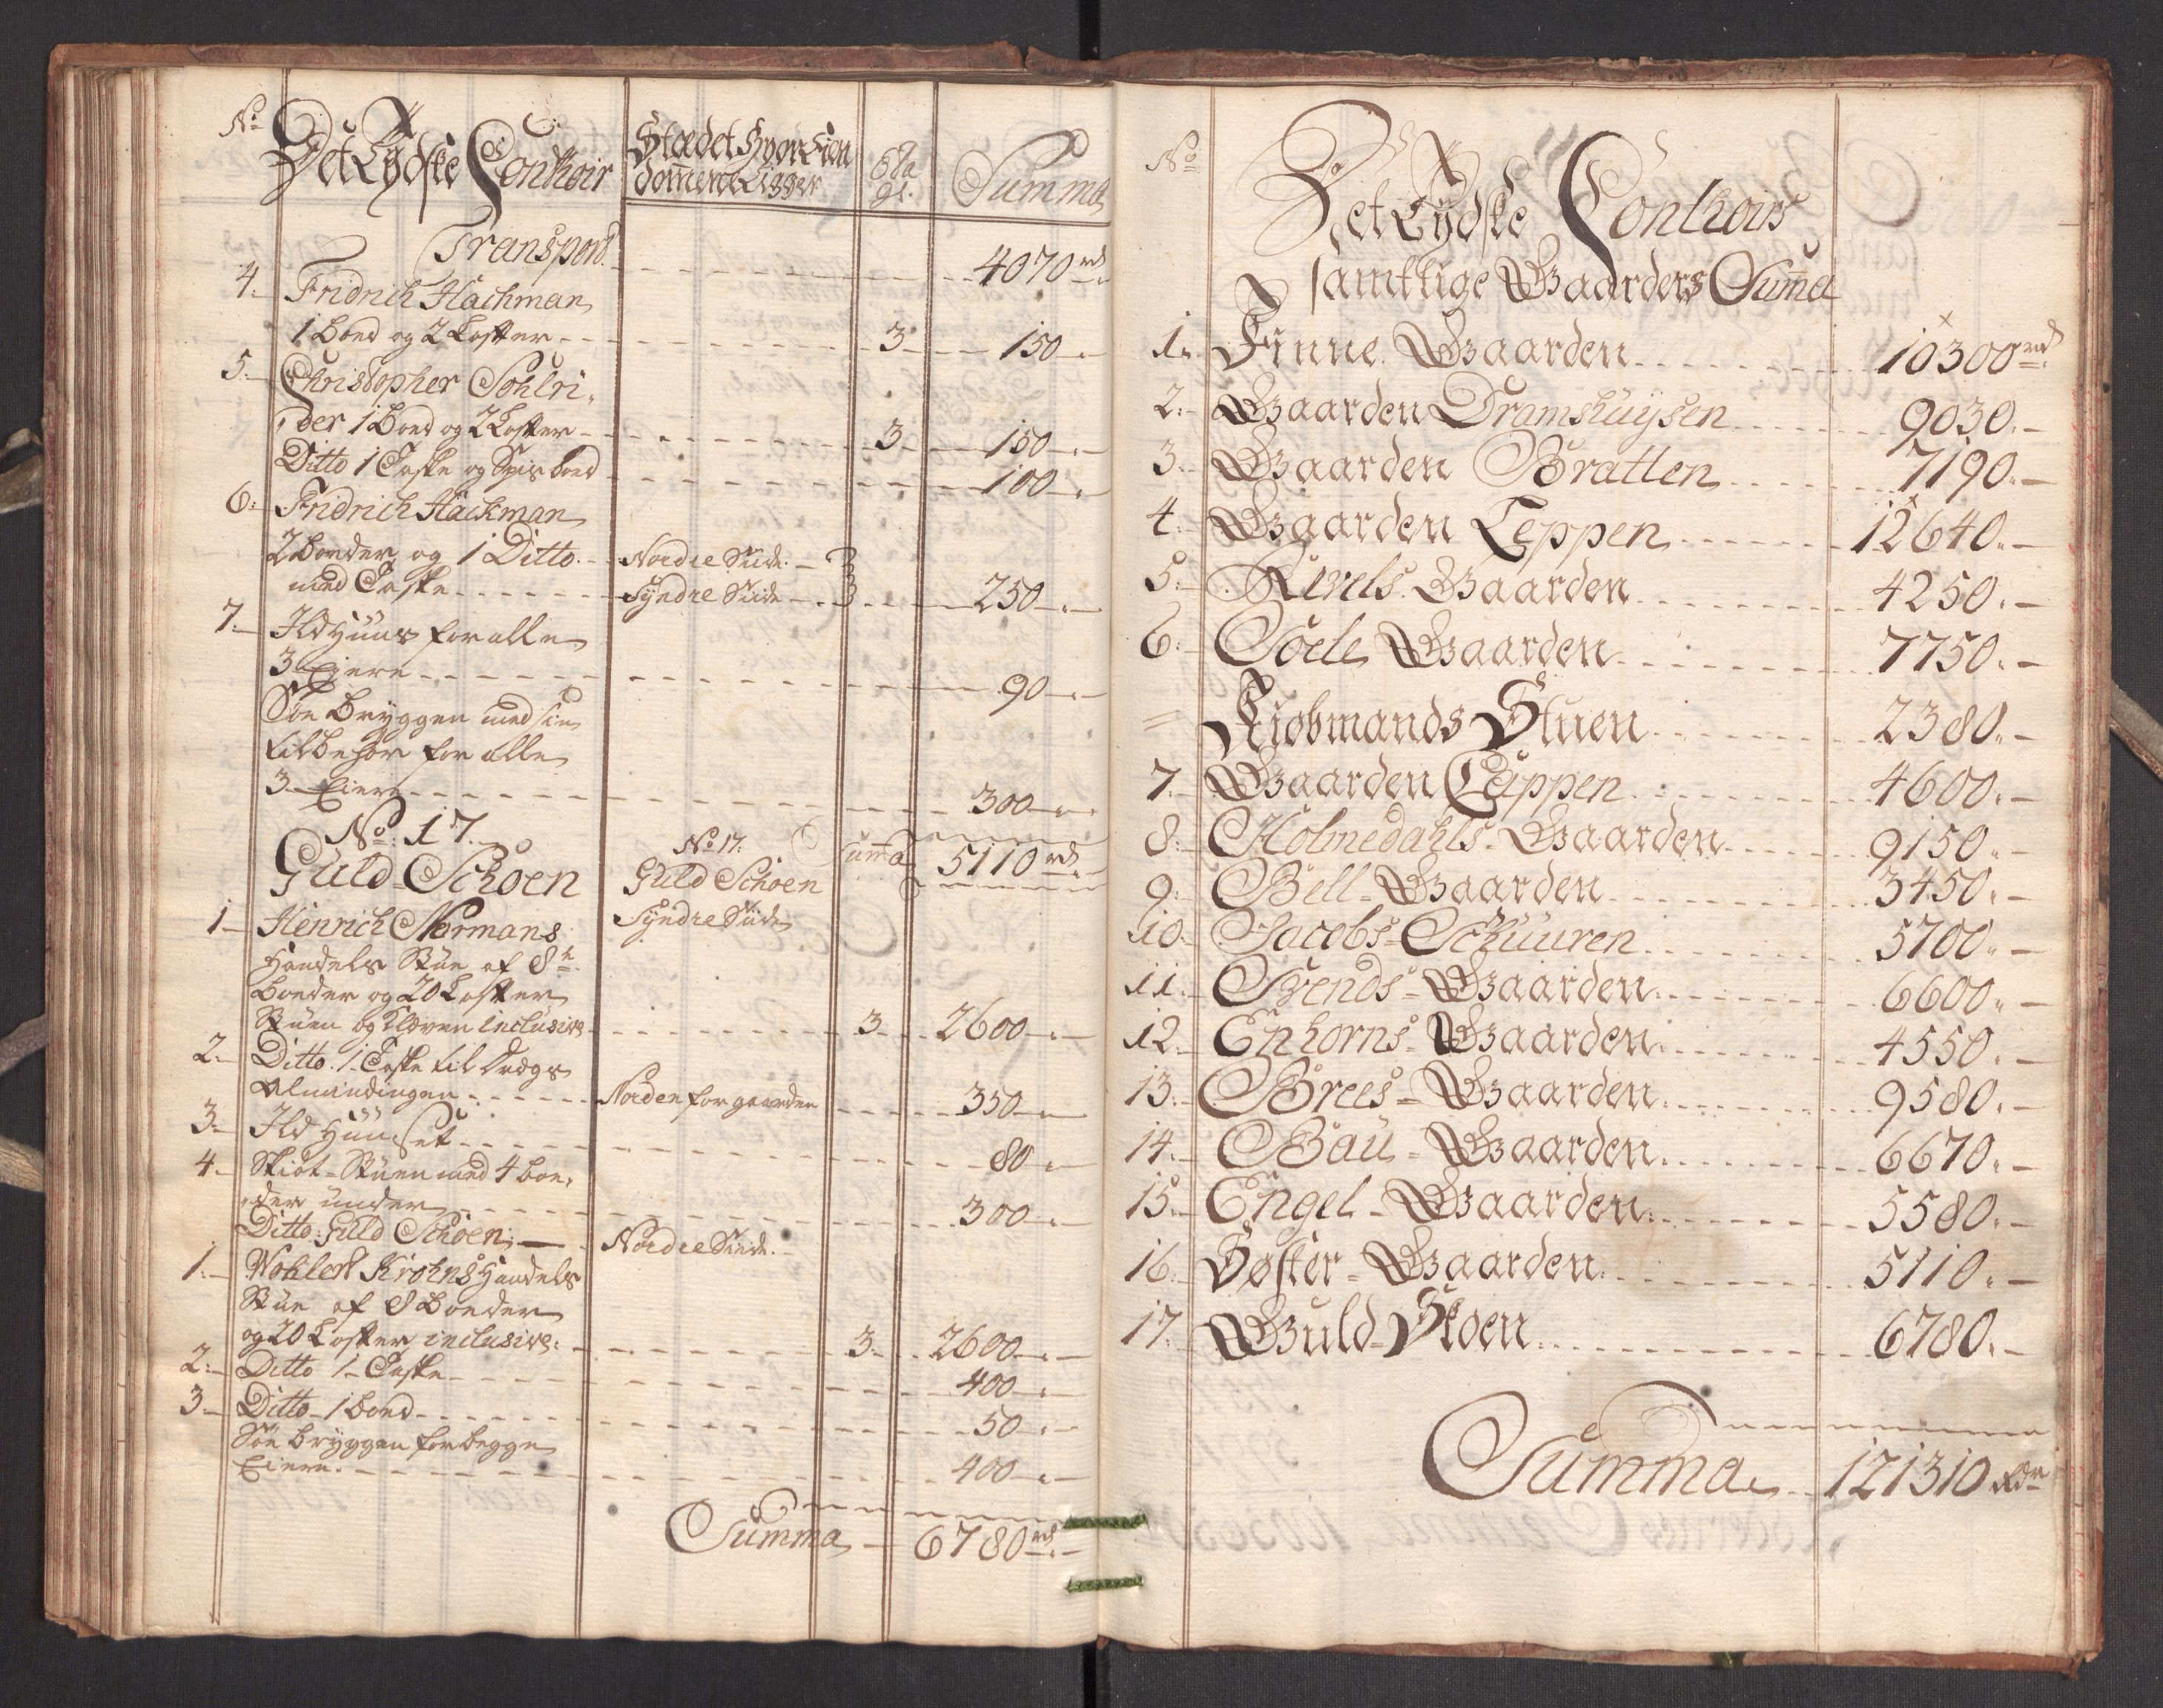 No Det Tydske Contkoir Stædet hvor Eien Eta Summa
dommene Ligger ge.
Transport - 4070 rd
4. Fridrich Hachman
1 boed og 2 Lofter - 3 - 150 -
5. Christopher Sohlri,
der 1 boed og 2 Lofter - 3 - 150 -
Ditto 1 Taske og Spis boed - 100 -
6: Fridrich Hackman
2 boeder og 1 Ditto - Nordre Siide - 3
med Taske - Syndre Siide - 3 - 250 -
7: Ildhuus for alle
3 Eiere - 90 -
Søe Bryggen med sin
tilbehør for alle
3 Eiere - 300 -
No: 17. No 17: Summa 5110 rd
Guld-Schoen Guld Schoen
1 - Henrich Normans Syndre Siide
Handels Stue af 8te
boeder og 20 Lofter
Stuen og Kloven inclusive - 3 - 2600 -
2. Ditto. 1 Taske til Dregs
Almindingen - Norden for gaarden - 350 -
3. Ild Huuset - 80 -
4. Skiøt-Stuen med 4 boe,
der under - 300 -
Ditto: Guld Schoen: - Nordre Siide. -
1. Wohlert Krohns Handels
Stue af 8 Boeder
og 20 Lofter inclusive: - 3 - 2600 -
2: Ditto 1 - Taske - 400 -
3 - Ditto - 1 boed - 50 -
Søe bryggen for begge
Eiere. - 400 -
Summa - 6780 rd
No
Det Tydske Contkoirs
samttlige Gaarders Suma
1. Finne Gaarden 10300 rd
2. Gaarden Dramshuysen 9030. -
3. Gaarden Bratten 7190. -
4. Gaarden Leppen 12640. -
5. Revels Gaarden 4250. -
6. Soele Gaarden 7750. -
= Kiøbmands Stuen 2380. -
7. Gaarden Cappen 4600. -
8. Holmedahls-Gaarden 9150. -
9. Bell-Gaarden 3450. -
10. Jacobs-Schuuren 5700. -
11. Svends-Gaarden 6600. -
12. Enhorns-Gaarden 4550. -
13. Brees-Gaarden 9580. -
14. Bau-Gaarden 6670. -
15. Engel-Gaarden 5580. -
16. Søster-Gaarden 5110. -
17. Guld-Skoen 6780. -
Summa - 121310 Rdr